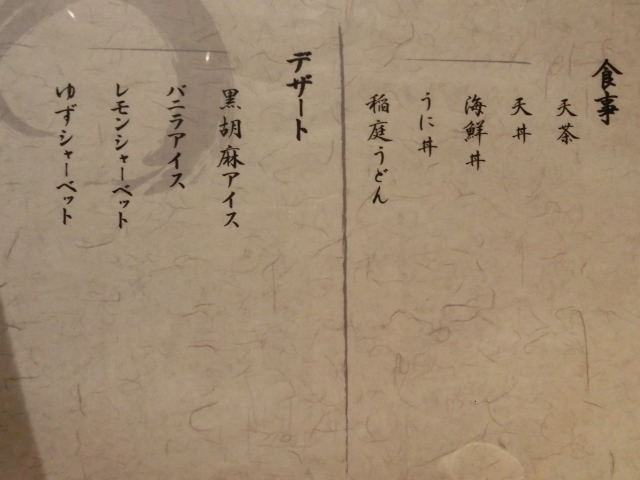 食事
天茶
天丼
海鮮丼
うに丼
稲庭うどん
デザート
黒胡麻アイス
バニラアイス
レモンシャーベット
ゆずシャーベット